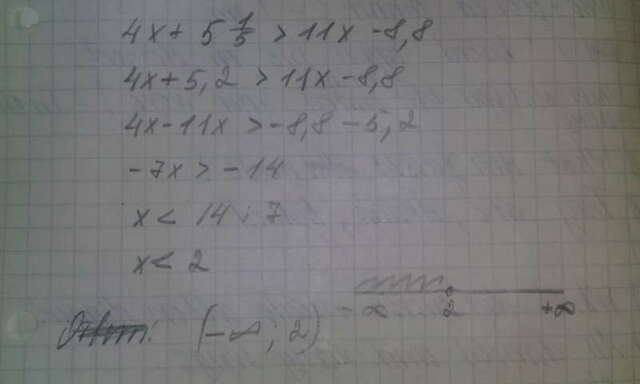 4x + 5 1/5 > 11x - 8,8
4x + 5,2 > 11x - 8,8
4x - 11x > -8,8 - 5,2
-7x > -14
x < 14 : 7
x < 2
-∞ 2 +∞
Ответ: (-∞; 2)